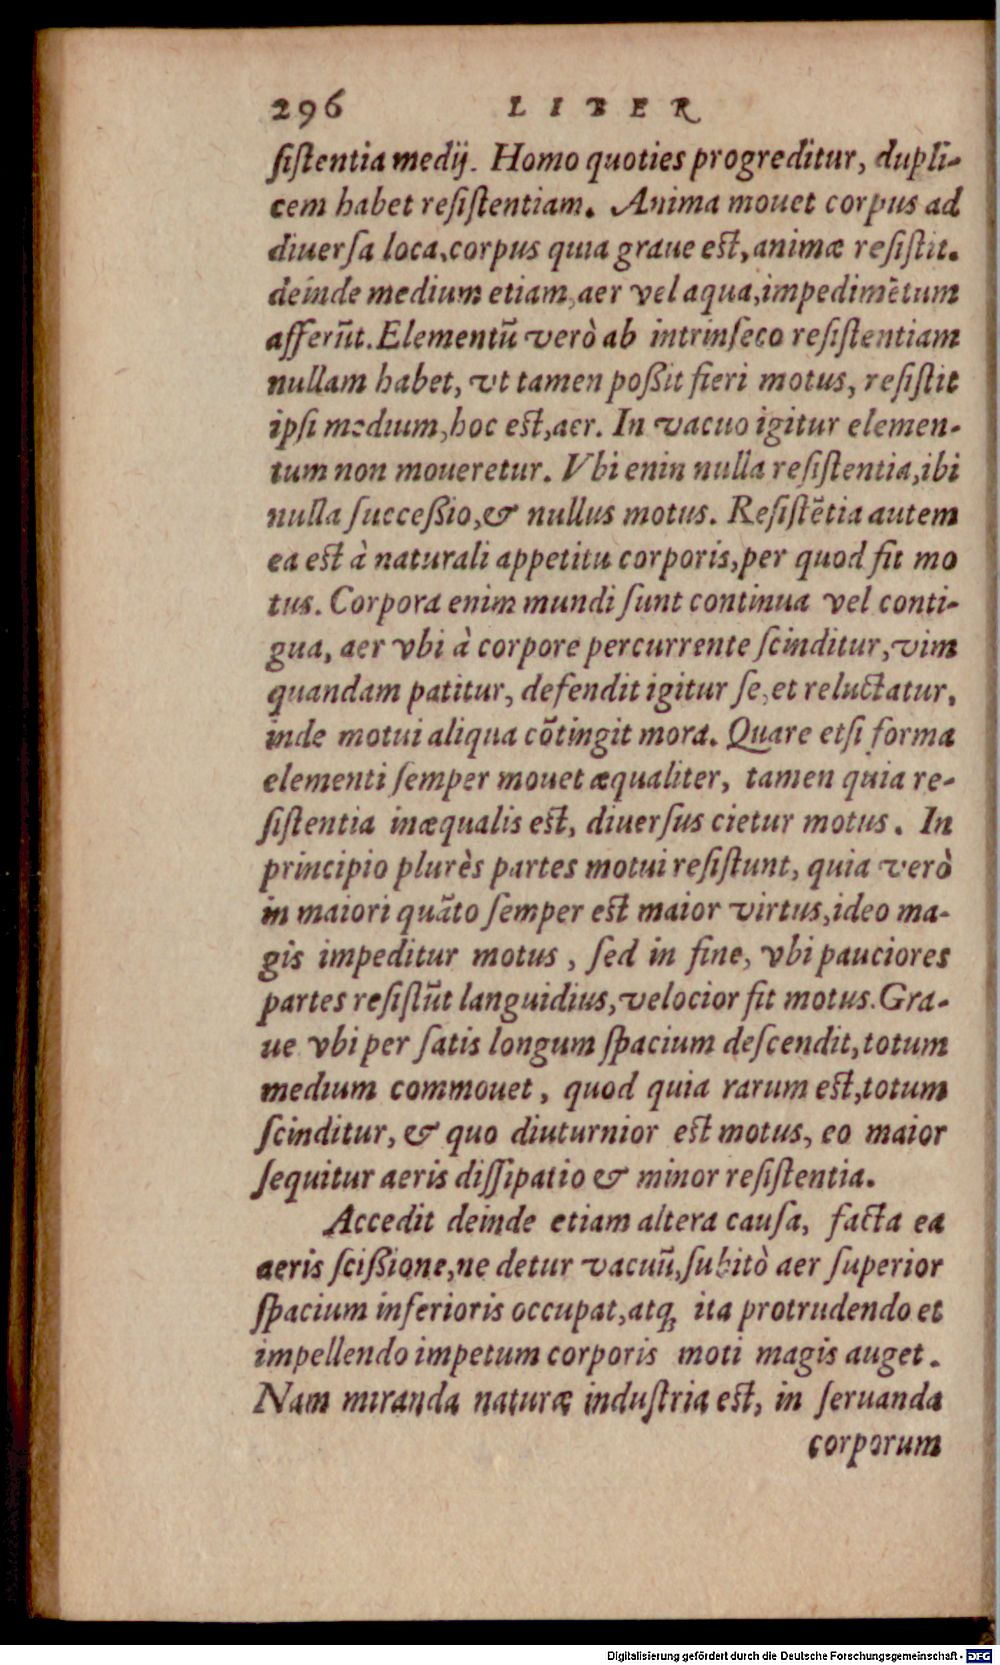 296 LIBER
ſiſtentia medij. Homo quoties progreditur, dupli-
cem habet reſiſtentiam. Anima mouet corpus ad
diuerſa loca, corpus quia graue eſt, animæ reſiſtit.
deinde medium etiam, aer vel aqua, impedimẽtum
afferũt. Elementũ verò ab intrinſeco reſiſtentiam
nullam habet, vt tamen poßit fieri motus, reſiſtit
ipſi medium, hoc eſt, aer. In vacuo igitur elemen-
tum non moueretur. Vbi enin nulla reſiſtentia, ibi
nulla ſucceßio, & nullus motus. Reſiſtẽtia autem
ea eſt à naturali appetitu corporis, per quod fit mo
tus. Corpora enim mundi ſunt continua vel conti-
gua, aer vbi à corpore percurrente ſcinditur, vim
quandam patitur, defendit igitur ſe, et reluctatur,
inde motui aliqua cõtingit mora. Quare etſi forma
elementi ſemper mouet æqualiter, tamen quia re-
ſiſtentia inæqualis eſt, diuerſus cietur motus. In
principio plurès partes motui reſiſtunt, quia verò
in maiori quãto ſemper eſt maior virtus, ideo ma-
gis impeditur motus, ſed in fine, vbi pauciores
partes reſiſtũt languidius, velocior fit motus. Gra-
ue vbi per ſatis longum ſpacium deſcendit, totum
medium commouet, quod quia rarum eſt, totum
ſcinditur, & quo diuturnior eſt motus, eo maior
ſequitur aeris diſſipatio & minor reſiſtentia.
Accedit deinde etiam altera cauſa, facta ea
aeris ſcißione, ne detur vacuũ, ſubitò aer ſuperior
ſpacium inferioris occupat, atq; ita protrudendo et
impellendo impetum corporis moti magis auget.
Nam miranda naturæ induſtria eſt, in ſeruanda
corporum
Digitalisierung gefördert durch die Deutsche Forschungsgemeinschaft - DFG